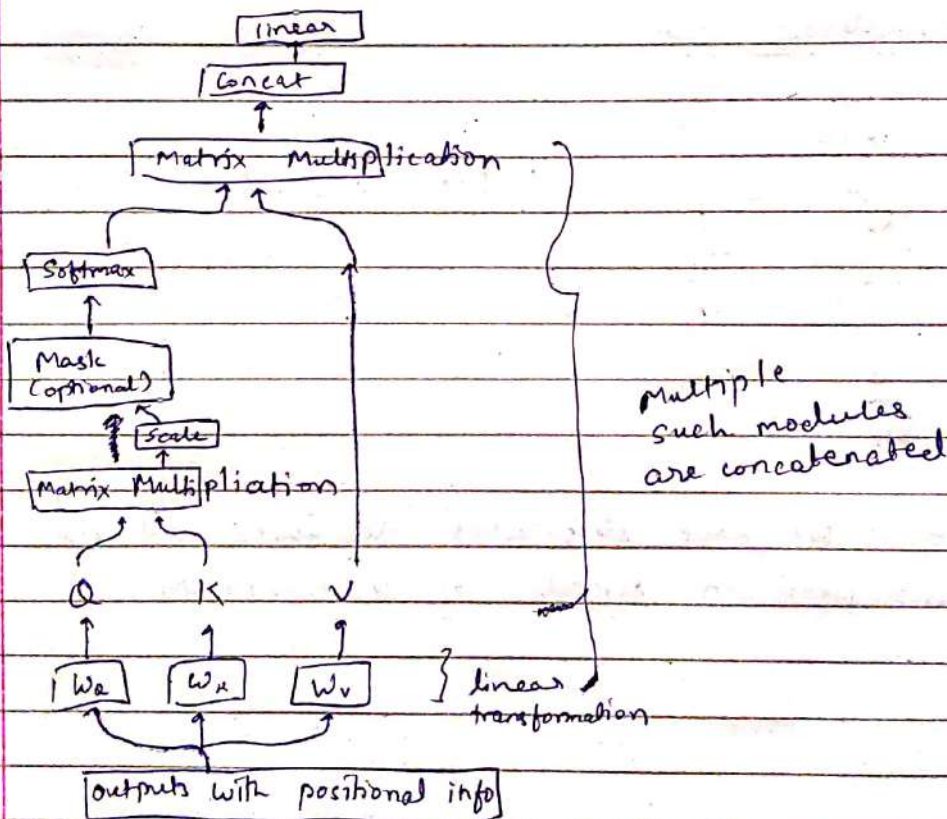 linear
Concat
Matrix Multiplication
Softmax
Mask
(optional)
Scale
Matrix Multipliation
Multiple
such modules
are concatenated
Q K V
WQ WK WV
linear
transformation
outputs with positional info